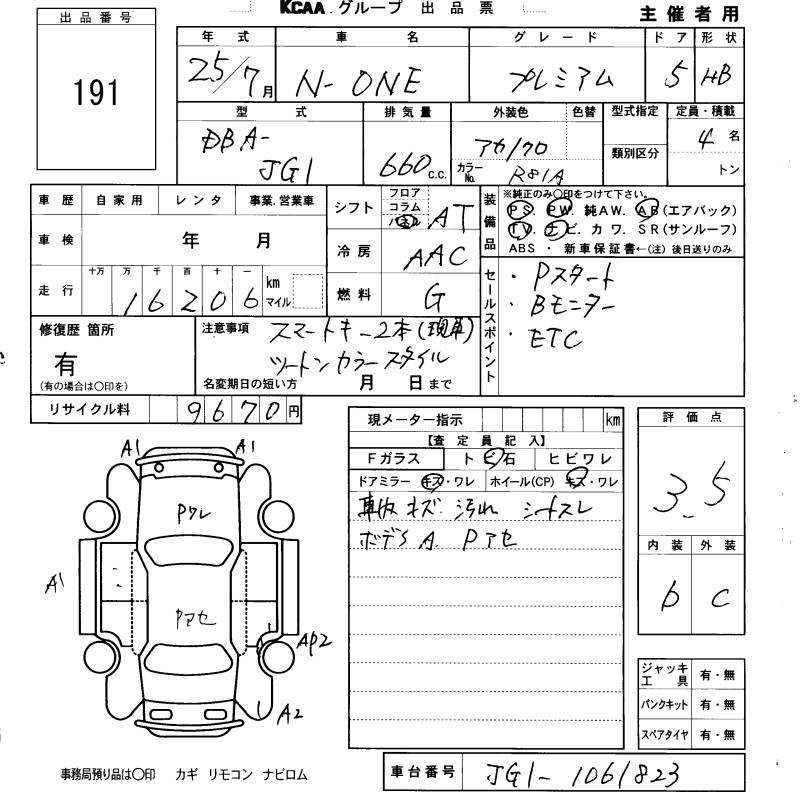 KCAA.グループ 出品票
主催者用
出品番号
191
年式 車名 グレード ドア 形状
25/7月 N-ONE プレミアム 5 HB
型式 排気量 外装色 色替 型式指定 定員・積載
DBA-JG1 660 c.c. アカ/クロ カラーNo. R81A 類別区分 4名 トン
車歴 自家用 レンタ 事業.営業車
車検 年 月
走行 十万 万 千 百 十 一
16206 km マイル
シフト フロア コラム パネル AT
冷房 AAC
燃料 G
装備品
※純正のみ〇印をつけて下さい。
PS. PW. 純AW. AB(エアバック)
TV. ナビ. カワ. SR(サンルーフ)
ABS ・ 新車保証書←(注)後日送りのみ
セールスポイント
・Pスタート
・Bモニター
・ETC
修復歴 箇所
有
(有の場合は〇印を)
注意事項 スマートキー2本(現車)
ツートンカラースタイル
名変期日の短い方 月 日まで
リサイクル料 9670円
現メーター指示 km
【査定員記入】
Fガラス トビ石 ヒビワレ
ドアミラー キズ・ワレ ホイール(CP) キズ・ワレ
車内キズ 汚れ シートスレ
ボデーS A. Pアセ
評価点
3.5
内装 外装
b C
A1 A1
Pワレ
A1
Pアセ
AP2
A2
ジャッキ工具 有・無
パンクキット 有・無
スペアタイヤ 有・無
事務局預り品は〇印 カギ リモコン ナビロム
車台番号 JG1-1061823